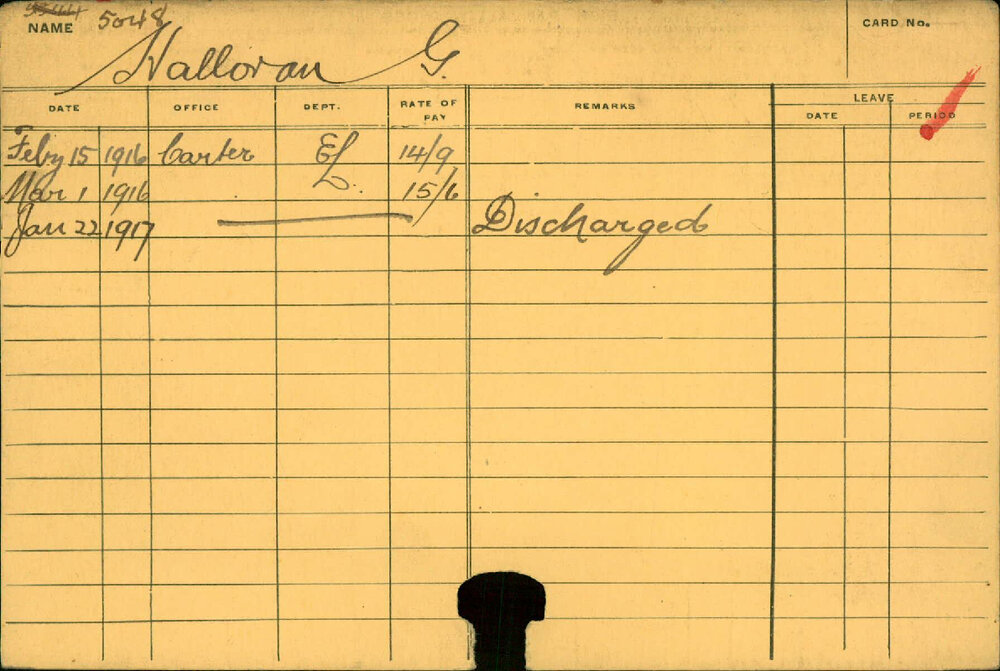 5048
NAME Halloran G.
CARD No.
DATE OFFICE DEPT. RATE OF PAY REMARKS LEAVE
DATE PERIOD
Feby 15 1916 Carter EL 14/9
Mar 1 1916 15/6
Jan 22 1917 Discharged